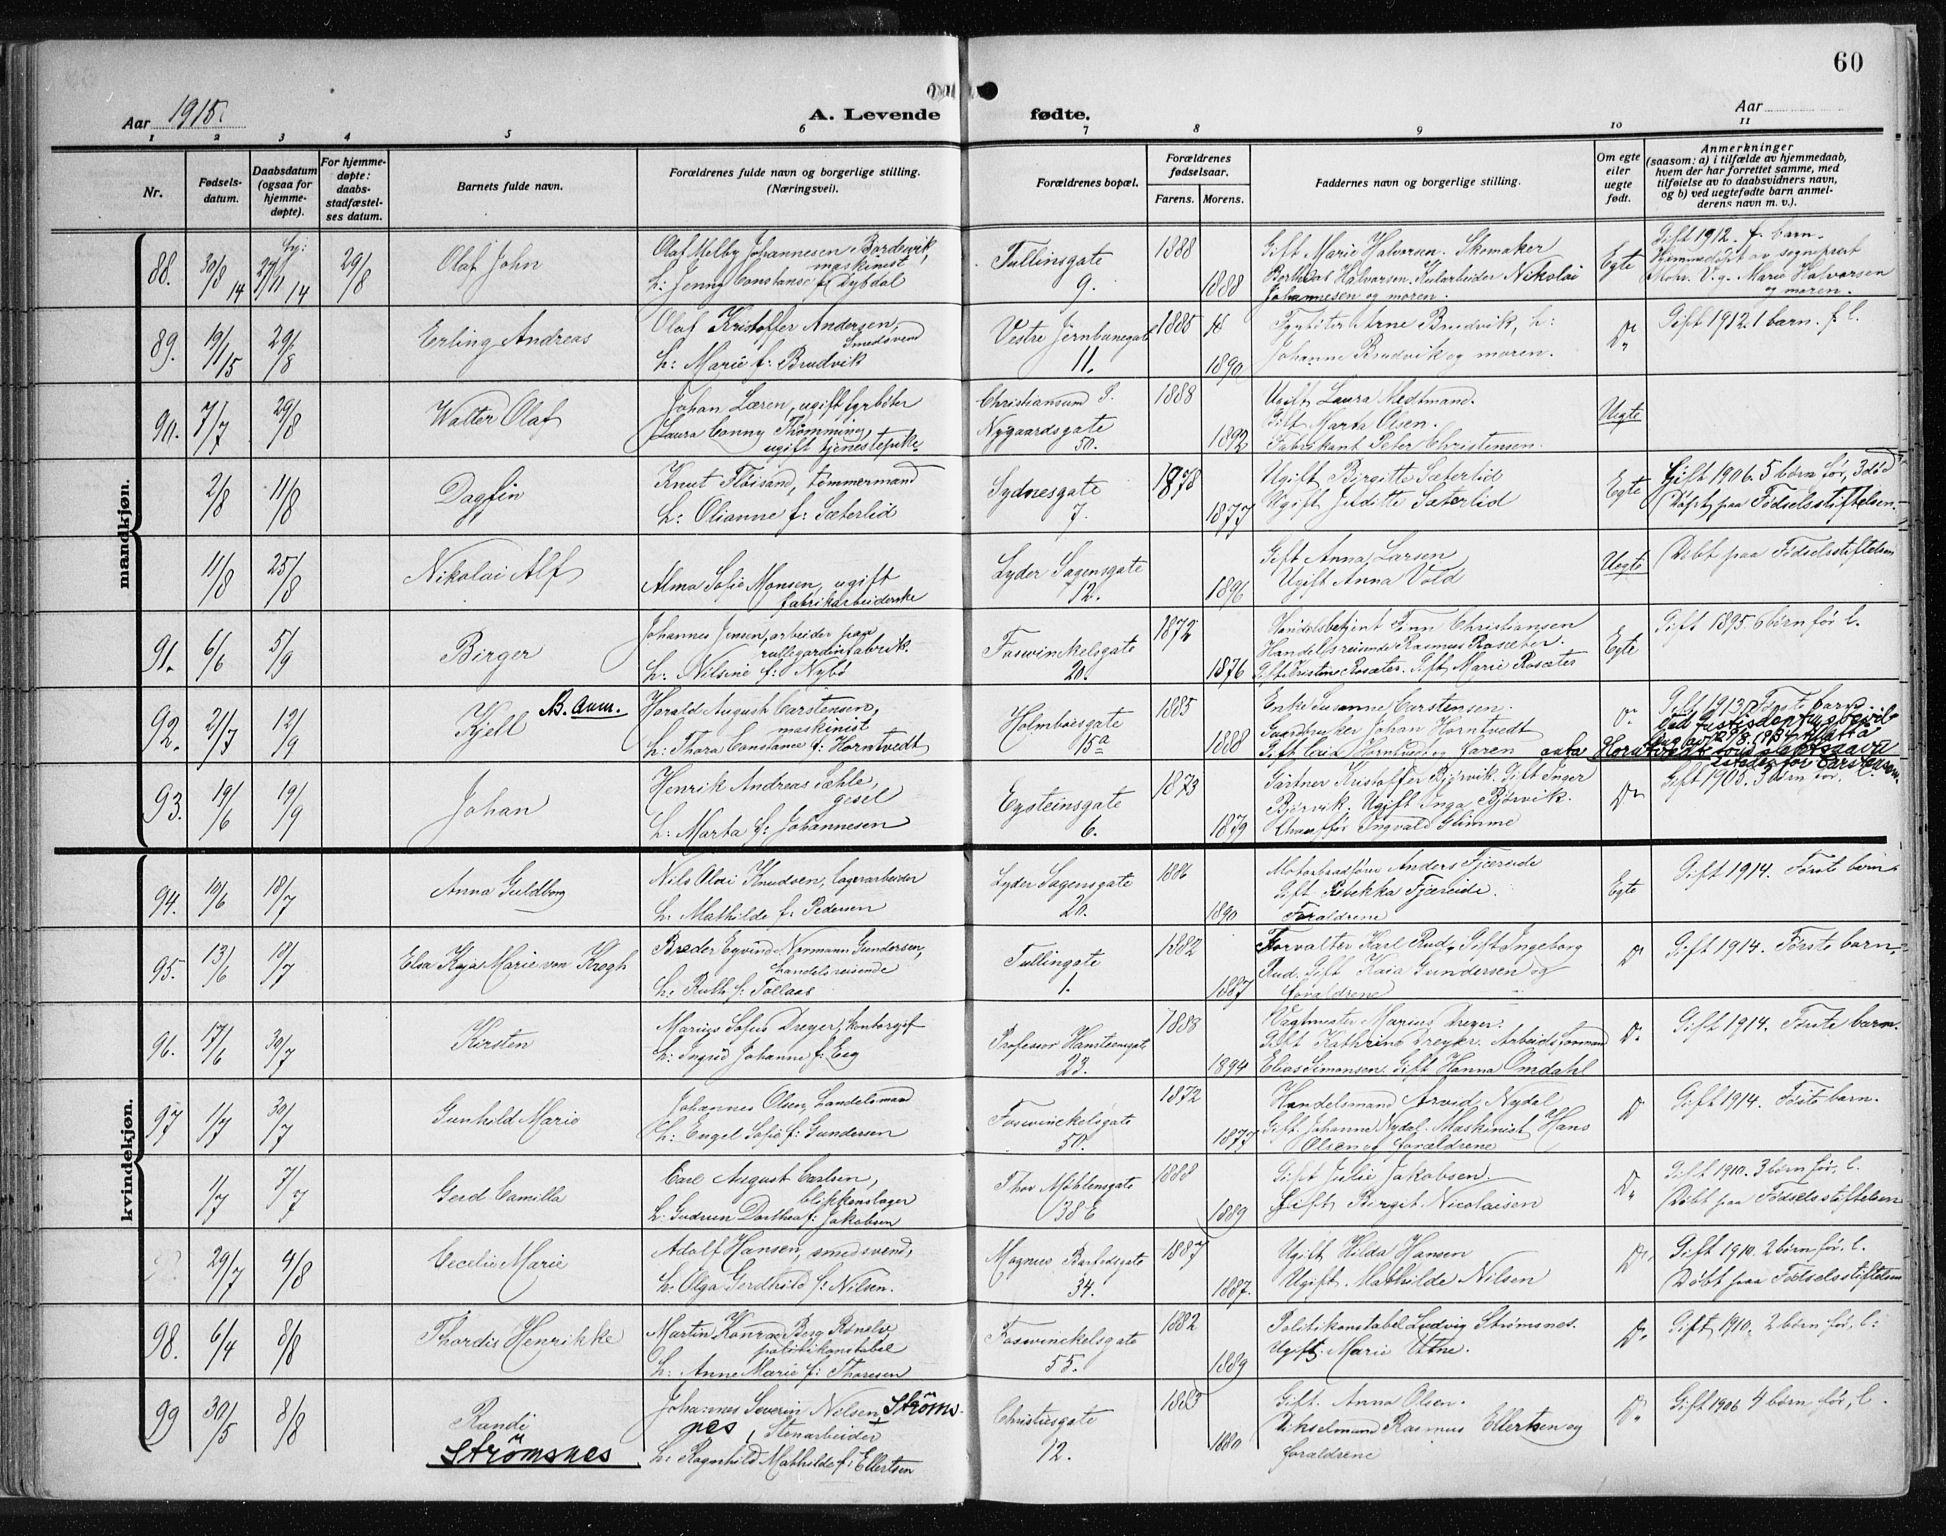 60
Aar 1915. A. Levende fødte. Aar
1 2 3 4 5 6 7 8 9 10 11
Nr. Fødsels-datum. Daabsdatum (ogsaa for hjemme-døpte). For hjemme-døpte: daabs-stadfæstel-ses datum. Barnets fulde navn. Forældrenes fulde navn og borgerlige stilling. (Næringsvei). Forældrenes bopæl. Forældrenes fødselsaar. Farens. Morens. Faddernes navn og borgerlige stilling. Om egte eller uegte født. Anmerkninger (saasom: a) i tilfælde av hjemmedaab, hvem der har forrettet samme, med tilføielse av to daabsvidners navn, og b) ved uegtefødte barn anmel-derens navn m. v.).
mandkjøn.
88. 30/8 14 27/11 14 29/8 Olaf John
Olaf Melby Johannesen Bordewik, maskinist
h: Jenny Constanse f. Dybdal
Tullinsgate 9. 1888 1888
Gift Marie Halvorsen. Skomaker
Berthdal Halvorsen. Kularbeider Nikolai
Johannesen og moren.
Egte
Gift 1912. f. barn.
Hjemmedøpt av sognepræst
Mohr. V.g. Marie Halvorsen
og moren.
89. 19/1 15 29/8 Erling Andreas
Olaf Kristoffer Andersen, Smedsvend
h: Marie f: Brudvik
Vestre Jernbanegate 11. 1885 1890
Fyrbøter Arne Brudvik, h:
Johanne Brudvik og moren.
Do
Gift 1912. 1 barn. f. l.
90. 7/7 29/8 Walter Olaf
Johan Læren, ugift fyrbøter
Laura Conny Thømming, ugift tjenestepike
Christiansund S.
Nygaardsgate 50. 1888 1892
Ugift Laura Nedtmand.
Gift Marta Olsen.
Fabrikant Peter Christensen.
Uegte
2/8 11/8 Dagfin
Knut Fløisand, tømmermand
h: Olianne f: Sæterlid
Sydnesgate 7. 1878 1877
Ugift Birgitte Sæterlid
Ugift Juditte Sæterlid
Egte
Gift 1906. 5 børn før, 3 død
Døpt paa Fødselsstiftelsen.
11/8 25/8 Nikolai Alf
Alma Sofie Monsen, ugift
fabrikarbeiderske
Lyder Sagensgate 12. 1896
Gift Anna Larsen
Ugift Anna Vold
Uegte
Døbt paa Fødselsstiftelsen
91. 6/6 5/9 Birger
Johannes Jensen, arbeider paa
rullegardinfabrik.
h: Nilsine f: Nybø
Foswinckelsgate 20. 1872 1876
Handelsbetjent Finn Christiansen
Handelsreisende Rasmus Rosæter.
Gift Kristine Rosæter. Gift Marie Rosæter
Egte
Gift 1895. 6 børn før l.
92. 2/7 12/9 Kjell B. Anm.
Harald August Carstensen,
maskinist
h: Thora Constance f: Horntvedt
Holmboesgate 15a 1885 1888
Enke Susanne Carstensen.
Snedker Johan Horntvedt
Do
Gift 1913. Første barn.
93. 19/6 19/9 Johan
Henrik Andreas Sæhle,
gesel
h: Marta f: Johannesen
Eysteinsgate 6. 1873 1879
Gartner Kristoffer Bjørvik. Gift Inger
Bjørvik. Ugift Inga Bjørvik.
Chauffør Ingvald Glimme
Do
Gift 1905. 3 børn før l.
kvindekjøn.
94. 10/6 18/7 Anna Guldborg
Nils Olai Knudsen, lagerarbeider
h: Mathilde f: Pedersen
Lyder Sagensgate 20. 1886 1890
Motorbaadfører Anders Fjæreide
Gift Rebekka Fjæreide.
Forældrene
Egte
Gift 1914. Første barn.
95. 13/6 18/7 Elsa Kaja Marie von Krogh
Breder Eyvind Normann Gundersen,
handelsreisende
h: Ruth f: Tollaas
Tullingate 1. 1882 1887
Forvalter Karl Rud. Gift Ingeborg
Rud. Gift Kaia Gundersen og
forældrene
Do
Gift 1914. Første barn.
96. 17/6 30/7 Kirsten
Marius Sofus Dreyer, kontorgift
h: Ingrid Johanne f: Eeg
Professor Hansteensgate 23. 1888 1894
Vagtmester Marius Dreyer.
Gift Kathrine Dreyer. Arbeidsformand
Elias Simonsen. Gift Hanna Omdahl
Do
Gift 1914. Første barn.
97 1/7 30/7 Gunhild Marie
Johannes Olsen, Landelsmand
h: Engel Sofie f: Gundersen
Foswinckelsgate 50. 1872 1877
Handelsmand Arvid Nydal
Gift Johanne Nydal. Maskinist Hans
Olsen og forældrene
Do
Gift 1914. Første barn.
1/7 7/7 Gerd Camilla
Carl August Carlsen,
blikkenslager
h: Gudrun Dorthea f: Jakobsen
Thor Møhlensgate 38 E 1888 1889
Gift Julie Jakobsen.
Gift Birgit Nicolaisen
Do
Gift 1910. 3 børn før, l.
Døbt paa Fødselsstiftelsen
29/7 4/8 Cecelie Marie
Adolf Hansen, smedsvend,
h: Olga Gerdhild f: Nilsen.
Magnus Barfodsgate 34. 1887 1887.
Ugift Hilda Hansen
Ugift. Mathilde Nilsen
Do
Gift 1910. 2 børn før, l.
Døbt paa Fødselsstiftelsen
98. 6/4 8/8 Thordis Henrikke
Martin Konrad Berg Rønelv
politikonstabel
h: Anne Marie f: Thoresen
Foswinckelsgate 55. 1882 1889
Politikonstabel Ludvig Strømsnes.
Ugift. Marie Utne.
Do
Gift 1910. 2 børn før, l:
99 30/5 8/8 Randi
Strømsnes
Johannes Severin Nilsen Strøms-
nes, Stenarbeider
h: Ragnhild Mathilde f: Ellertsen
Christiesgate 12. 1883 1880
Gift. Anna Olsen.
Rasmus Ellertsen og
forældrene
Do
Gift 1906 4 børn før, l.